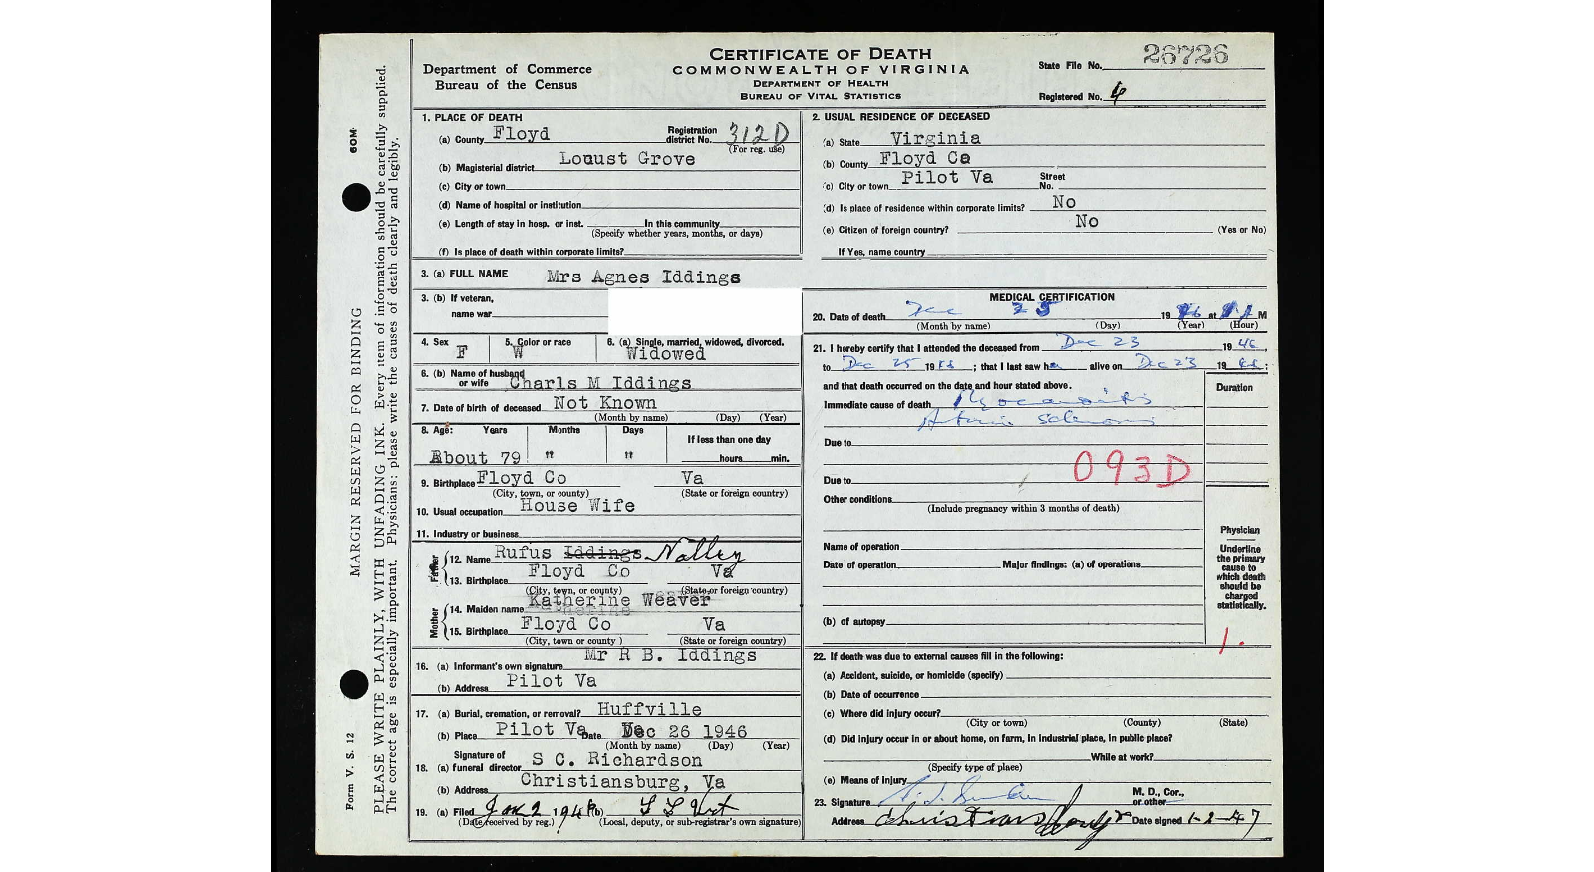 CERTIFICATE OF DEATH
COMMONWEALTH OF VIRGINIA
DEPARTMENT OF HEALTH
BUREAU OF VITAL STATISTICS
Department of Commerce
Bureau of the Census
State File No. 26726
Registered No. 4
60M
MARGIN RESERVED FOR BINDING
PLEASE WRITE PLAINLY, WITH UNFADING INK. Every item of information should be carefully supplied.
The correct age is especially important. Physicians: please write the causes of death clearly and legibly.
Form V. S. 12
1. PLACE OF DEATH
(a) County Floyd Registration district No. 312D
(For reg. use)
(b) Magisterial district Loaust Grove
(c) City or town
(d) Name of hospital or institution
(e) Length of stay in hosp. or inst. In this community
(Specify whether years, months, or days)
(f) Is place of death within corporate limits?
2. USUAL RESIDENCE OF DECEASED
(a) State Virginia
(b) County Floyd Co
(c) City or town Pilot Va Street No.
(d) Is place of residence within corporate limits? No
(e) Citizen of foreign country? No (Yes or No)
If Yes, name country
3. (a) FULL NAME Mrs Agnes Iddings
3. (b) If veteran,
name war
4. Sex F 5. Color or race W 6. (a) Single, married, widowed, divorced. Widowed
6. (b) Name of husband or wife Charls M Iddings
7. Date of birth of deceased Not Known
(Month by name) (Day) (Year)
8. Age: Years Months Days If less than one day
About 79 " " hours min.
9. Birthplace Floyd Co Va
(City, town, or county) (State or foreign country)
10. Usual occupation House Wife
11. Industry or business
Father
12. Name Rufus Iddings Nalley
13. Birthplace Floyd Co Va
(City, town, or county) (State or foreign country)
Mother
14. Maiden name Katherine Weaver
15. Birthplace Floyd Co Va
(City, town or county) (State or foreign country)
16. (a) Informant's own signature Mr R B. Iddings
(b) Address Pilot Va
17. (a) Burial, cremation, or removal? Huffville
(b) Place Pilot Va Date Dec 26 1946
(Month by name) (Day) (Year)
18. Signature of (a) funeral director S C. Richardson
(b) Address Christiansburg, Va
19. (a) Filed Jan 2 194 (b)
(Date received by reg.) (Local, deputy, or sub-registrar's own signature)
MEDICAL CERTIFICATION
20. Date of death Dec 25 1946 at M
(Month by name) (Day) (Year) (Hour)
21. I hereby certify that I attended the deceased from Dec 23 1946,
to Dec 25 19 ; that I last saw h alive on Dec 23 19 ;
and that death occurred on the date and hour stated above.
Duration
Immediate cause of death Myocarditis
Due to
Due to 093D
Other conditions
(Include pregnancy within 3 months of death)
Name of operation
Date of operation Major findings: (a) of operations
(b) of autopsy
Physician
Underline the primary cause to which death should be charged statistically.
1.
22. If death was due to external causes fill in the following:
(a) Accident, suicide, or homicide (specify)
(b) Date of occurrence
(c) Where did injury occur?
(City or town) (County) (State)
(d) Did injury occur in or about home, on farm, in industrial place, in public place?
While at work?
(Specify type of place)
(e) Means of injury
23. Signature M. D., Cor., or other
Address Christiansburg Date signed 1-2-47